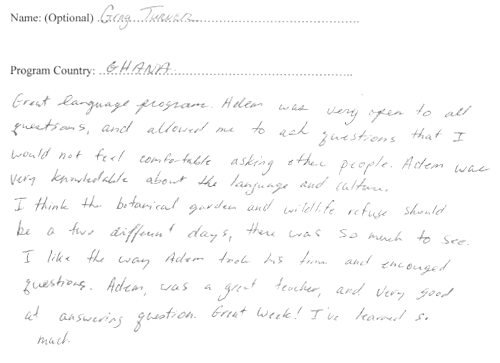 Name: (Optional) Greg Turner
Program Country: GHANA
Great language program. Adem was very open to all
questions, and allowed me to ask questions that I
would not feel comfortable asking other people. Adem was
very knowledable about the language and culture.
I think the botanical garden and wildlife refuse should
be a two different days, there was so much to see.
I like the way Adem took his time and encouged
questions. Adem, was a great teacher, and very good
at answering question. Great Week! I've learned so
much.